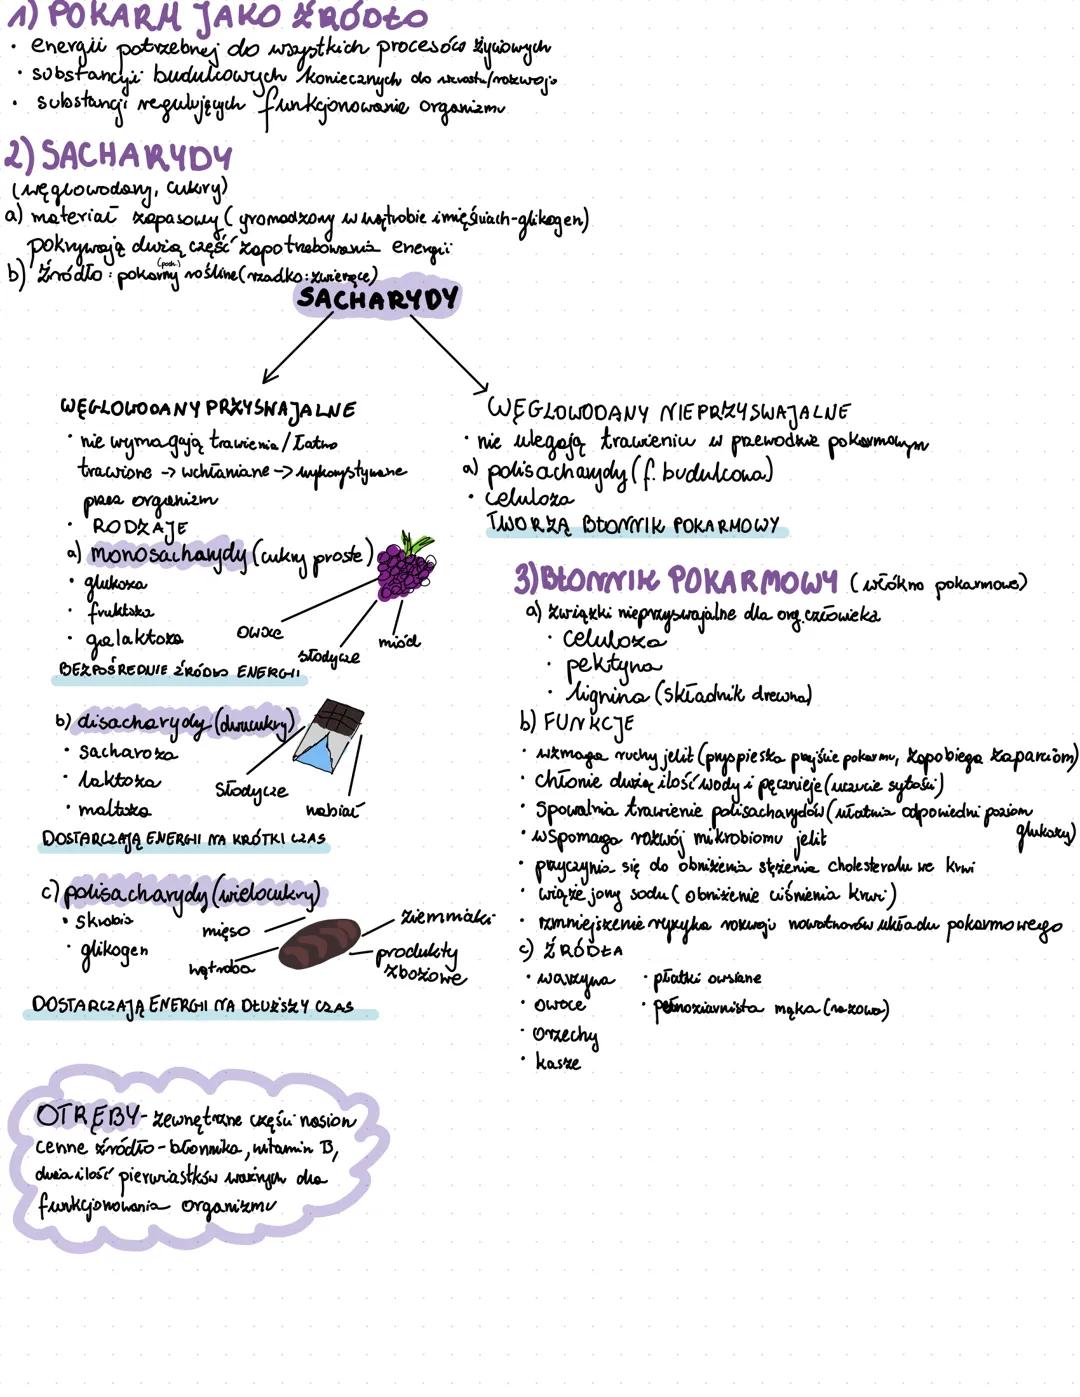 1) POKARM JAKO ŹRÓDŁO
· energii potrzebnej do wszystkich procesów życiowych
· substancji budulcowych koniecznych do wzrostu/rozwoju
· substancji regulujących funkcjonowanie organizmu
2) SACHARYDY
(węglowodany, cukry)
a) materiał zapasowy (gromadzony w wątrobie i mięśniach-glikogen)
pokrywają dużą część zapotrzebowania energii
b) źródło: pokarmy (poch.) roślinne (rzadko: zwierzęce)
SACHARYDY
WĘGLOWODANY PRZYSWAJALNE
· nie wymagają trawienia/łatwo
trawione -> wchłaniane -> wykorzystywane
przez organizm
· RODZAJE
a) monosacharydy (cukry proste)
· glukoza
· fruktoza
· galaktoza
owoce
słodycze
miód
BEZPOŚREDNIE ŹRÓDŁO ENERGII
b) disacharydy (dwucukry)
· sacharoza
· laktoza
· maltoza
słodycze
nabiał
DOSTARCZAJĄ ENERGII NA KRÓTKI CZAS
c) polisacharydy (wielocukry)
· skrobia
· glikogen
mięso
wątroba
ziemniaki
produkty
zbożowe
DOSTARCZAJĄ ENERGII NA DŁUŻSZY CZAS
OTRĘBY - zewnętrzne części nasion
cenne źródło - błonnika, witamin B,
duża ilość pierwiastków ważnych dla
funkcjonowania organizmu
WĘGLOWODANY NIEPRZYSWAJALNE
· nie ulegają trawieniu w przewodzie pokarmowym
a) polisacharydy (f. budulcowa)
· celuloza
TWORZĄ BŁONNIK POKARMOWY
3) BŁONNIK POKARMOWY (włókno pokarmowe)
a) związki nieprzyswajalne dla org. człowieka
· celuloza
· pektyna
· lignina (składnik drewna)
b) FUNKCJE
· wzmaga ruchy jelit (przyspiesza przejście pokarmu, zapobiega zaparciom)
· chłonie dużą ilość wody i pęcznieje (uczucie sytości)
· spowalnia trawienie polisacharydów (ułatwia odpowiedni poziom
glukozy)
· wspomaga rozwój mikrobiomu jelit
· przyczynia się do obniżenia stężenia cholesterolu we krwi
· wiąże jony sodu (obniżenie ciśnienia krwi)
· zmniejszenie ryzyka rozwoju nowotworów układu pokarmowego
c) ŹRÓDŁA
· warzywa · płatki owsiane
· owoce · pełnoziarnista mąka (razowa)
· orzechy
· kasze